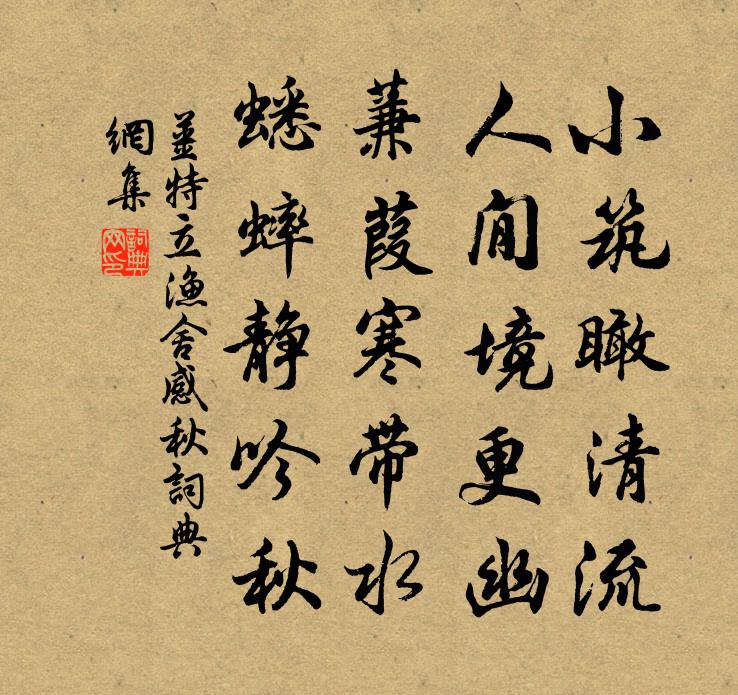 小筑瞰清流
人间境更幽
蒹葭寒带水
蟋蟀静吟秋
姜特立漁舍感秋詞典
網集
詞典網印